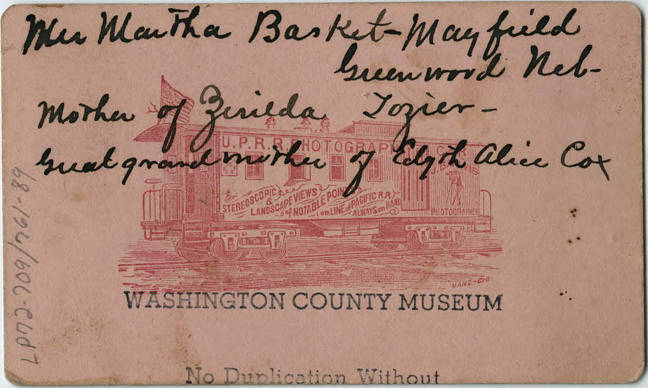 Mrs Martha Basket-Mayfield
Greenwood Neb-
Mother of Zerilda Tozier-
Great grandmother of Edyth Alice Cox
U.P.R.R. PHOTOGRAPH CAR
STEREOSCOPIC
&
LANDSCAPE VIEWS
of NOTABLE POINTS
on LINE of PACIFIC R.R.
ALWAYS on HAND
PHOTOGRAPHER
WASHINGTON COUNTY MUSEUM
No Duplication Without
LP72-209/1761-89